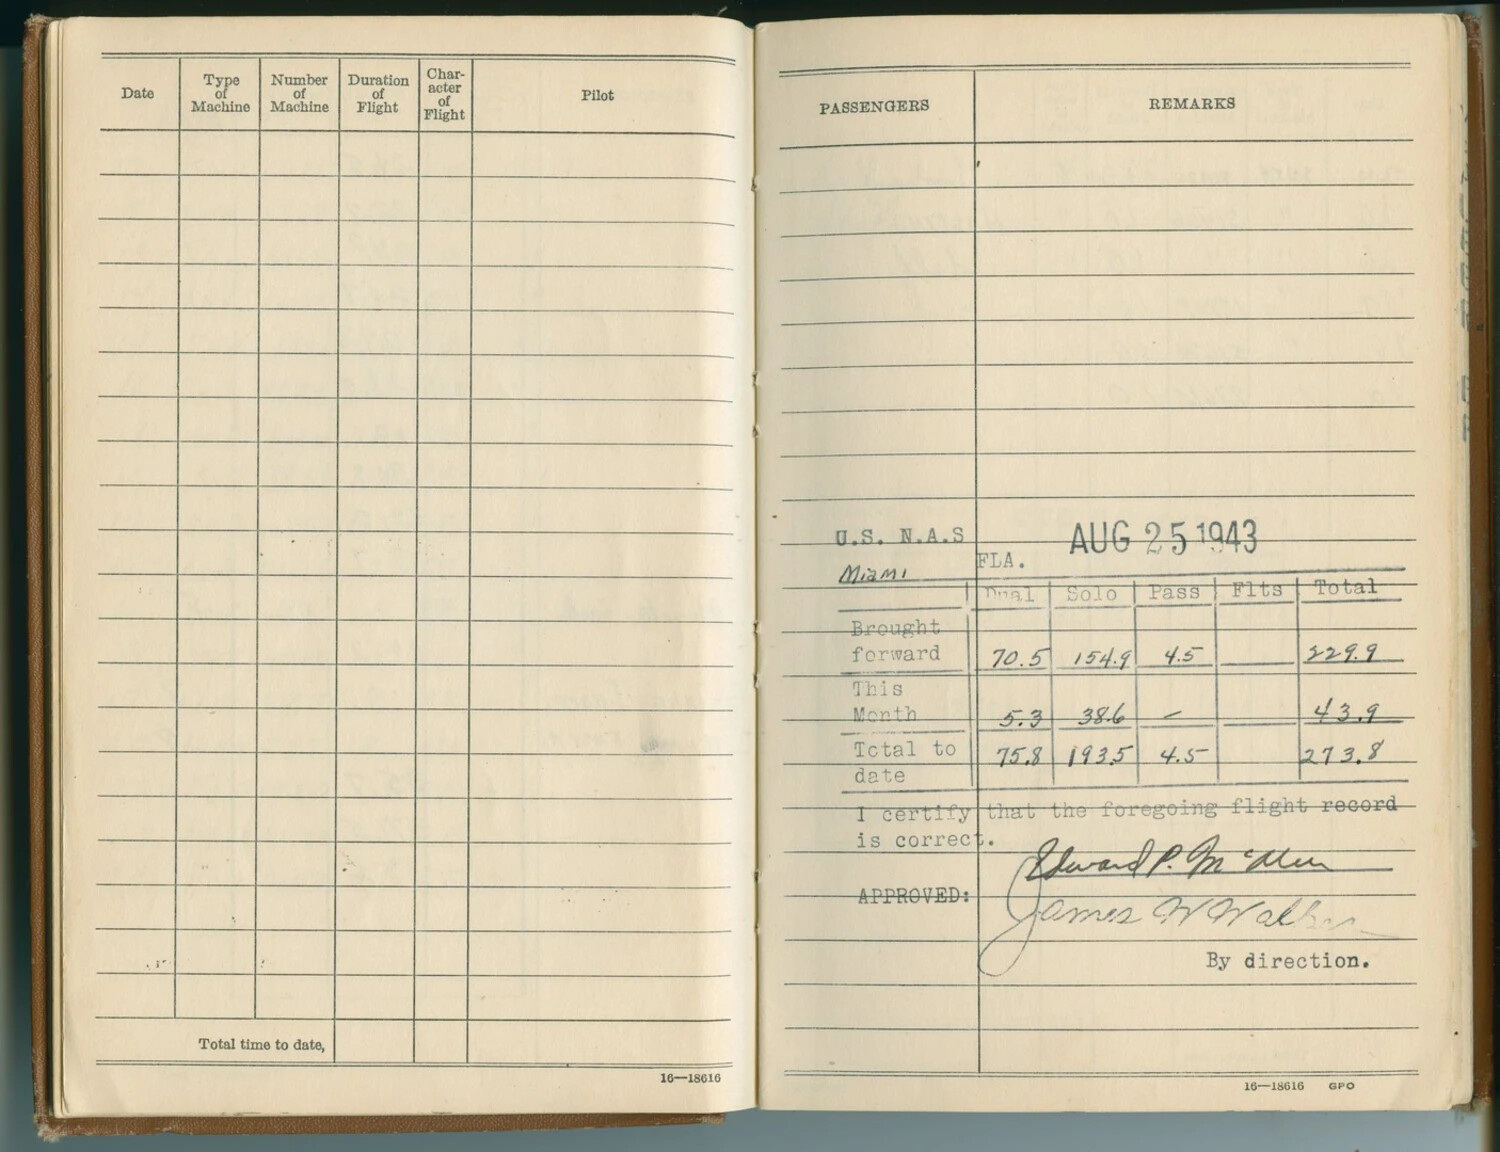 Date Type of Machine Number of Machine Duration of Flight Char-acter of Flight Pilot
Total time to date,
16—18616
PASSENGERS REMARKS
U.S. N.A.S AUG 25 1943
Miami FLA.
Dual Solo Pass Flts Total
Brought
forward 70.5 154.9 4.5 229.9
This
Month 5.3 38.6 – 43.9
Total to 75.8 193.5 4.5 273.8
date
I certify that the foregoing flight record
is correct.
Edward P.
APPROVED: James W Walker
By direction.
16—18616 GPO